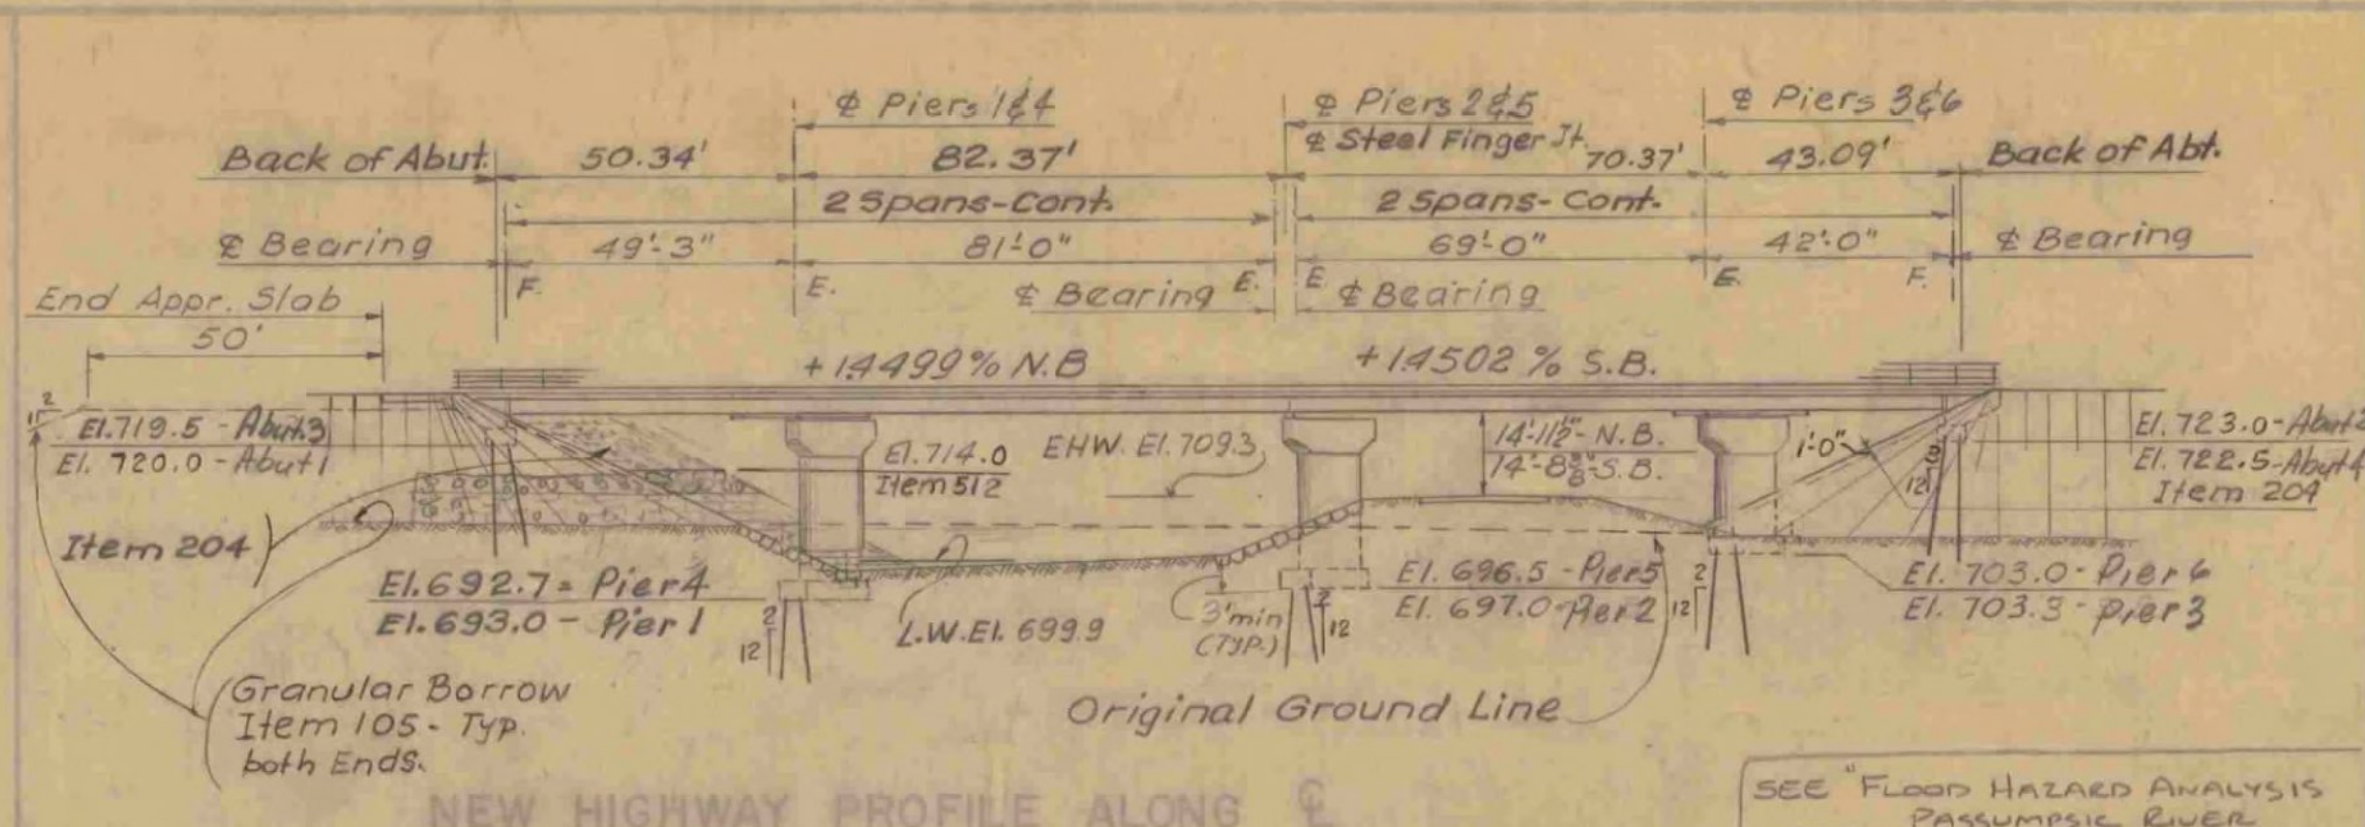 ℄ Piers 1&4
℄ Piers 2&5
℄ Piers 3&6
℄ Steel Finger Jt.
Back of Abut.
50.34'
82.37'
70.37'
43.09'
Back of Abt.
2 Spans-Cont.
2 Spans-Cont.
℄ Bearing
49'-3"
81'-0"
69'-0"
42'-0"
℄ Bearing
F.
E.
℄ Bearing
E.
E
℄ Bearing
E.
F.
End Appr. Slab
50'
+1.4499% N.B
+1.4502% S.B.
2
1
El.719.5 - Abut.3
El. 720.0 - Abut 1
El.714.0
Item 512
EHW. El. 709.3
14'-11½"- N.B.
14'-8⅝"-S.B.
1'-0"
12
El. 723.0-Abut 2
El. 722.5-Abut 4
Item 204
Item 204
El.692.7= Pier 4
El.693.0 - Pier 1
2
12
L.W. El. 699.9
3'min
(TYP.)
2
12
El. 696.5 - Pier 5
El. 697.0-Pier 2
2
12
El. 703.0-Pier 6
El. 703.3-pier 3
Granular Borrow
Item 105- Typ.
both Ends.
Original Ground Line
NEW HIGHWAY PROFILE ALONG ℄
SEE "FLOOD HAZARD ANALYSIS
PASSUMPSIC RIVER